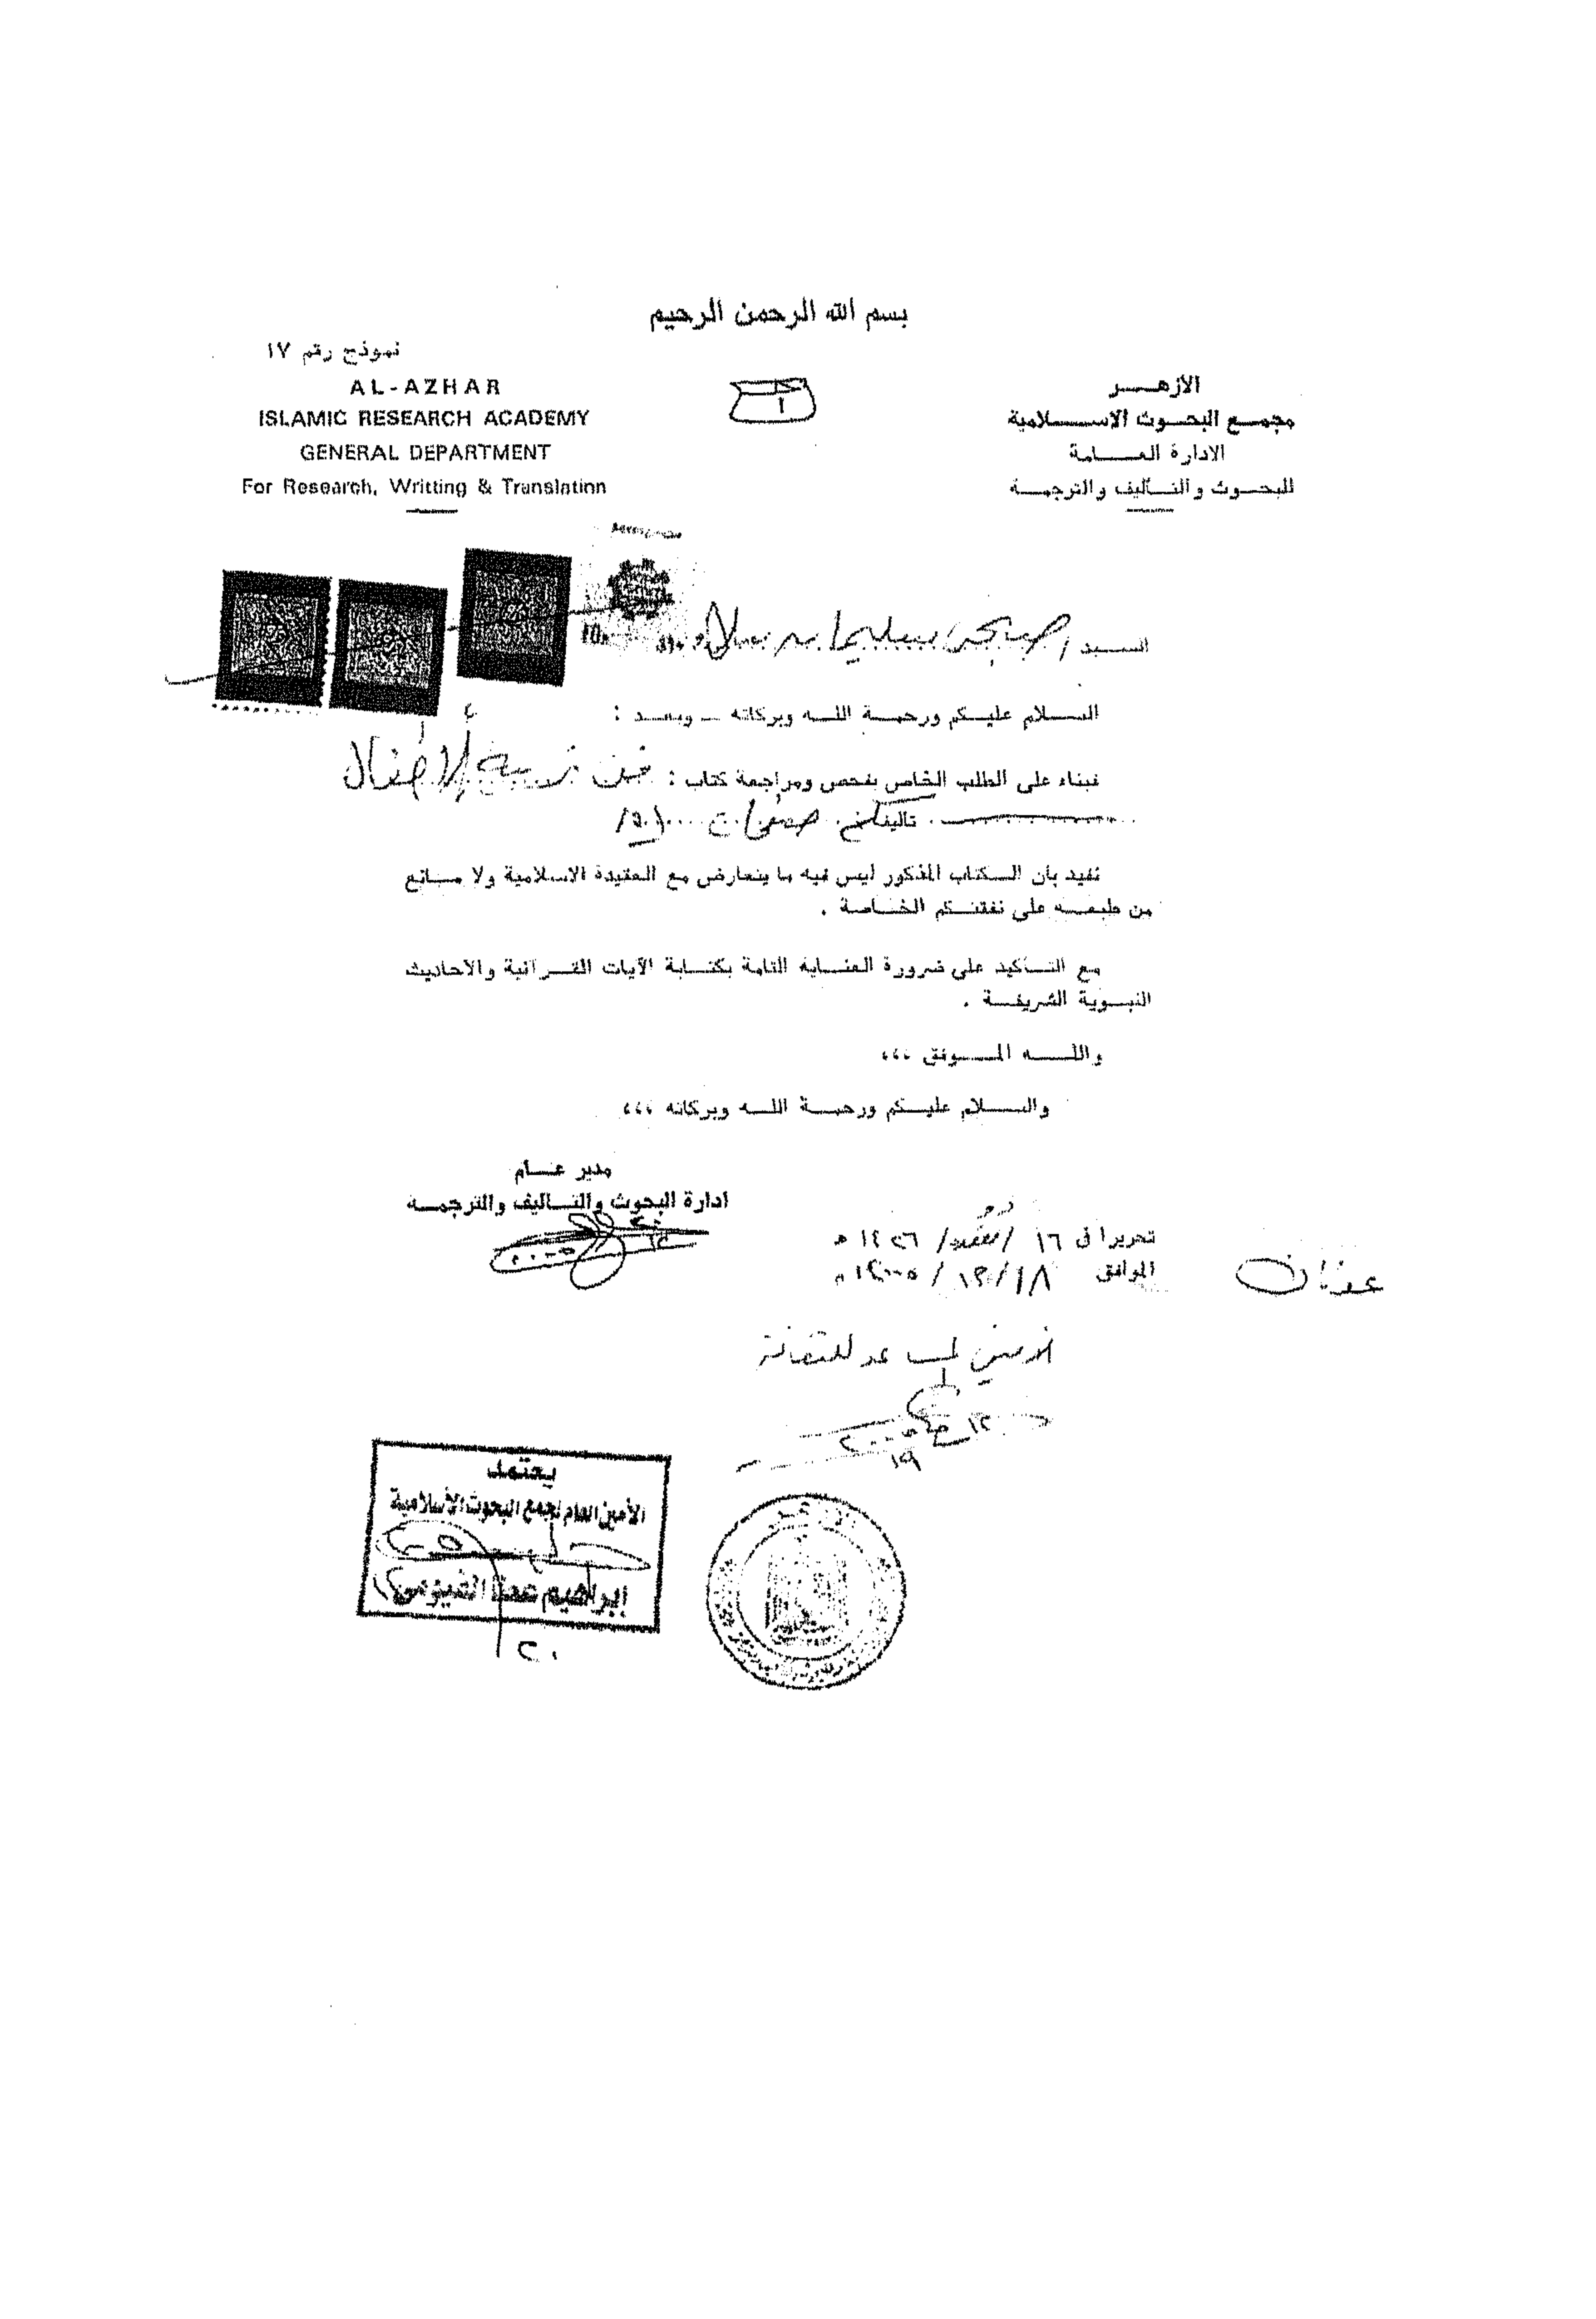 بسم الله الرحمن الرحيم
نموذج رقم ١٧
الأزهر
مجمع البحوث الاسلامية
الادارة العامة
للبحوث والتأليف والترجمة
AL-AZHAR
ISLAMIC RESEARCH ACADEMY
GENERAL DEPARTMENT
For Research, Writting & Translation
السيد / صبحى سليمان
السلام عليكم ورحمة الله وبركاته - وبعد :
فبناء على الطلب الخاص بفحص ومراجعة كتاب : فن تربية الأطفال
تأليفكم
نفيد بأن الكتاب المذكور ليس فيه ما يتعارض مع العقيدة الاسلامية ولا مانع
من طبعه على نفقتكم الخاصة .
مع التأكيد على ضرورة العناية التامة بكتابة الآيات القرآنية والاحاديث
النبوية الشريفة .
والله الموفق ،،،
والسلام عليكم ورحمة الله وبركاته ،،،
مدير عام
ادارة البحوث والتأليف والترجمة
تحريرا فى ١٦ / القعدة / ١٤٢٦ ه
الموافق ١٨ / ١٢ / ٢٠٠٥ م
يعتمد
الأمين العام لمجمع البحوث الأسلامية
إبراهيم عطا الفيومى